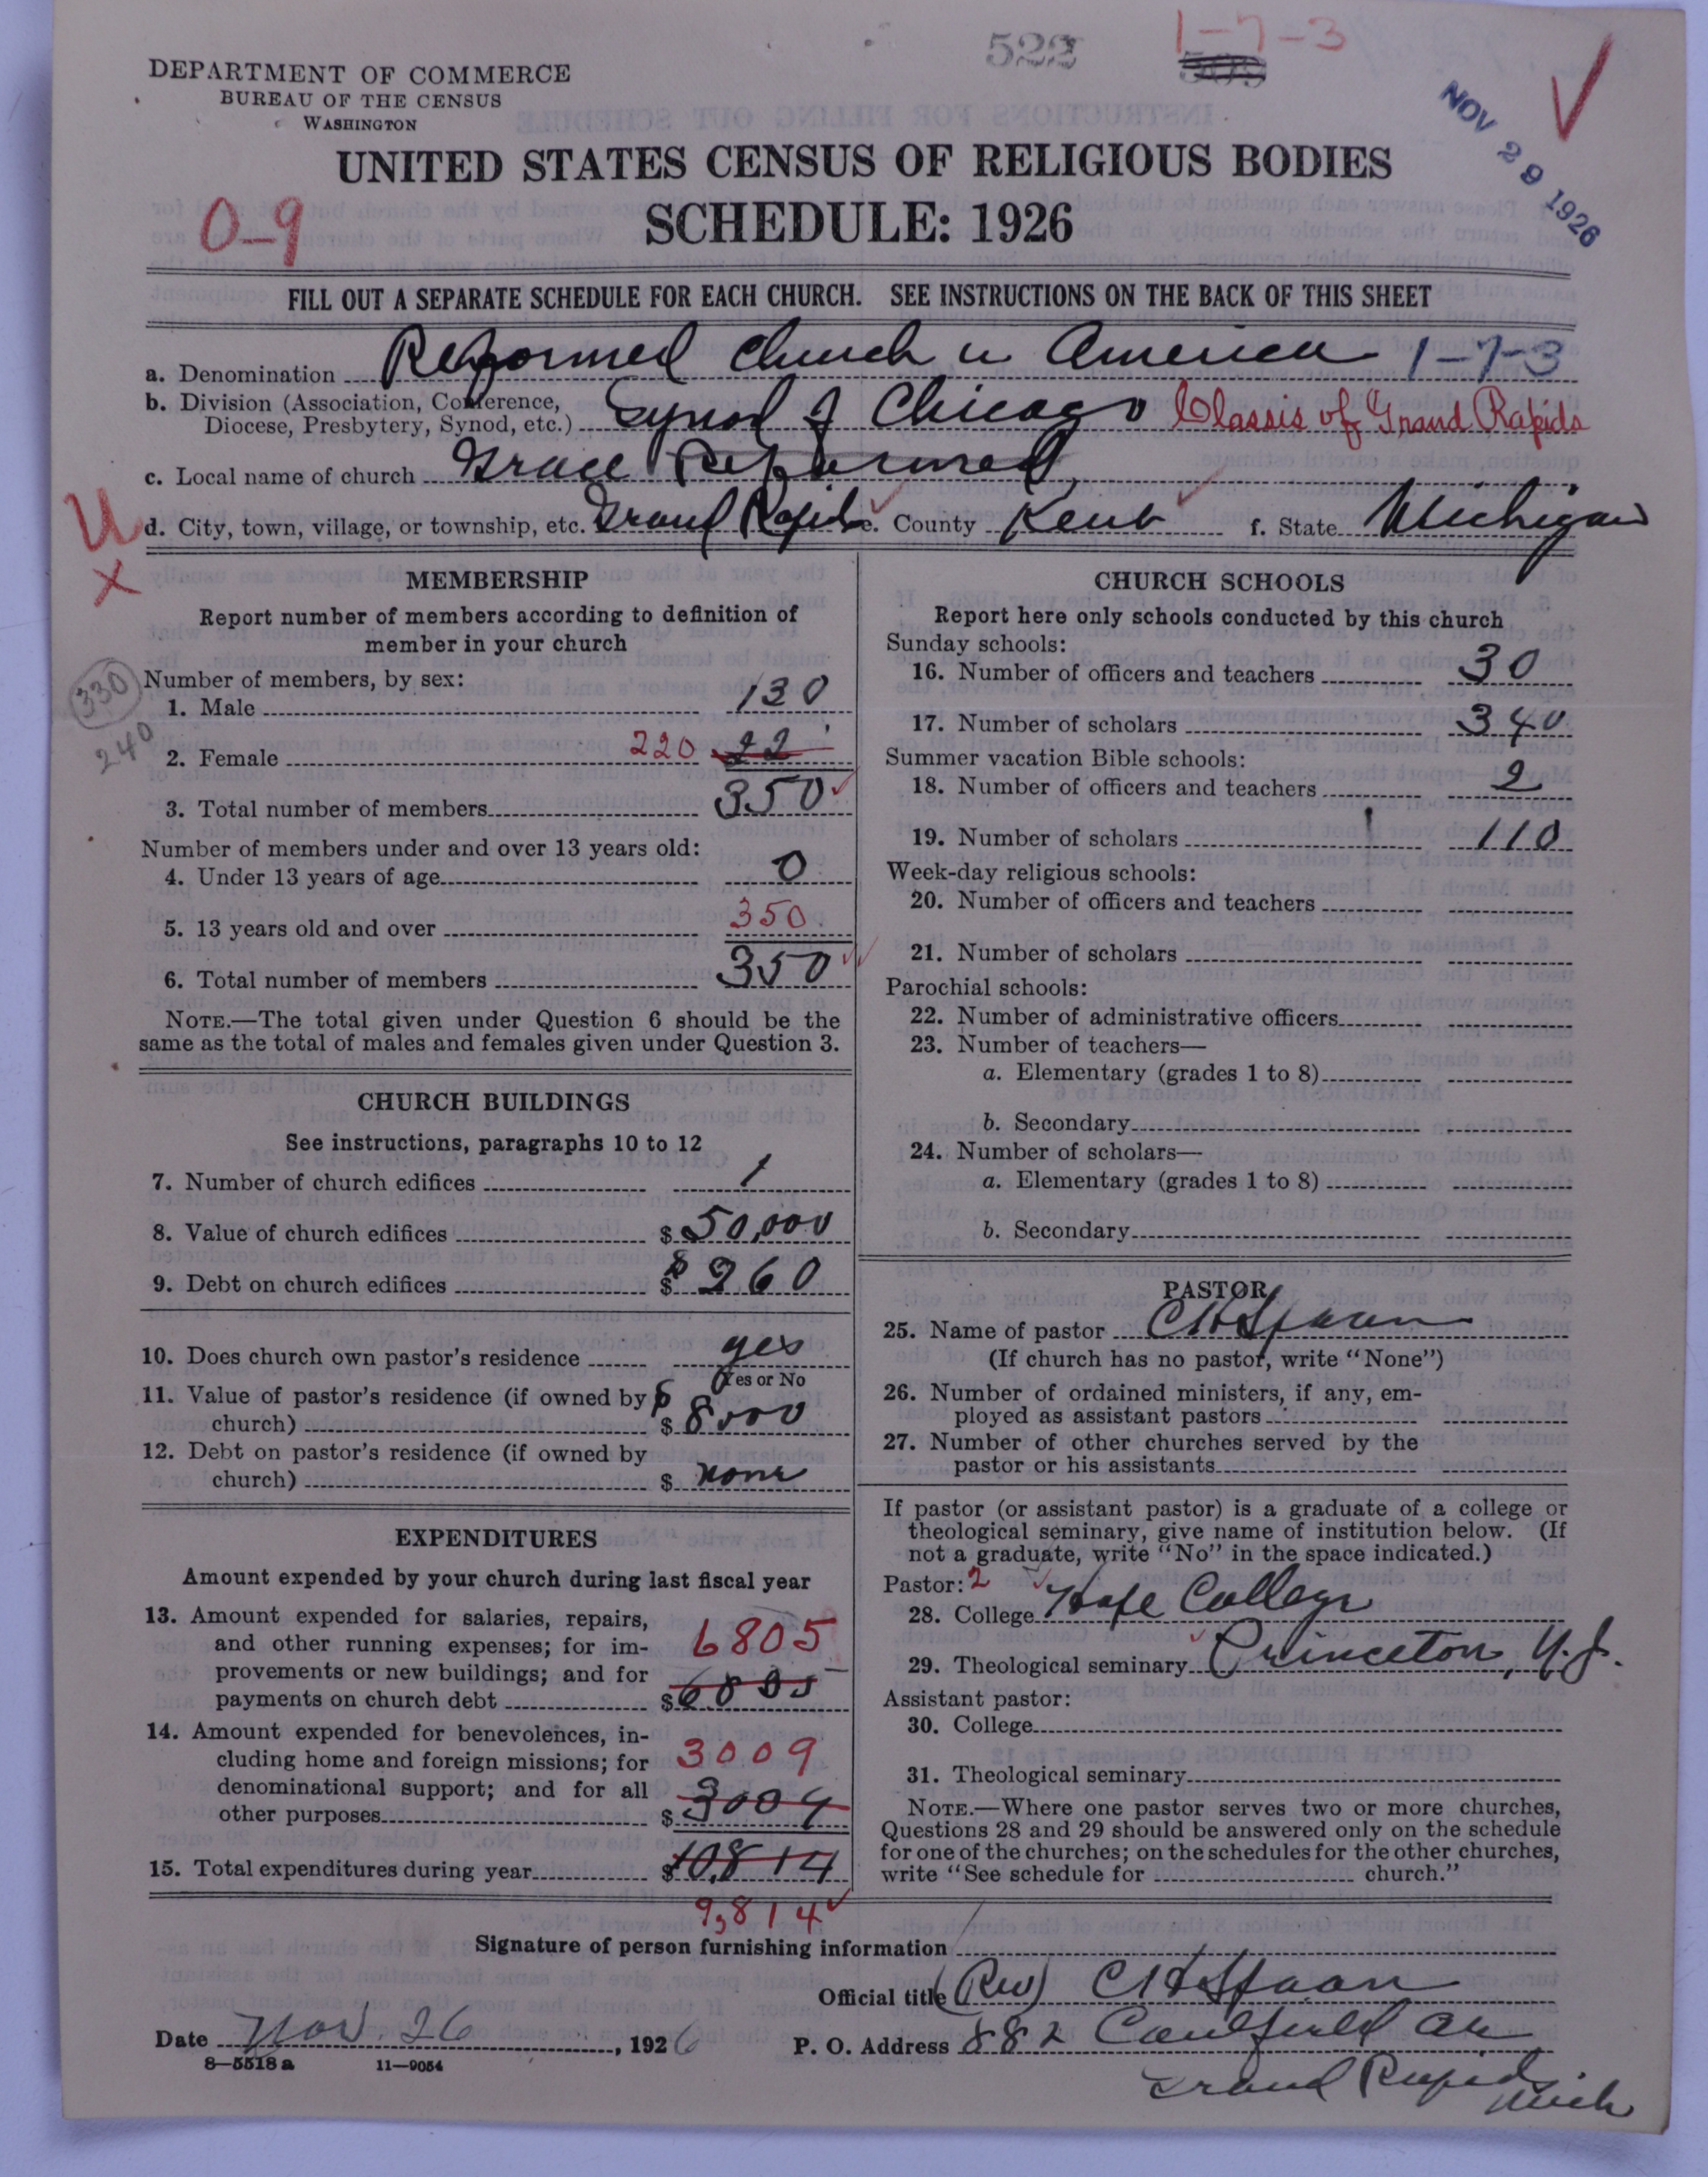 522
1-7-3
DEPARTMENT OF COMMERCE
BUREAU OF THE CENSUS
WASHINGTON
NOV 29 1926
UNITED STATES CENSUS OF RELIGIOUS BODIES
0-9
SCHEDULE: 1926
FILL OUT A SEPARATE SCHEDULE FOR EACH CHURCH. SEE INSTRUCTIONS ON THE BACK OF THIS SHEET
a. Denomination Reformed Church in America 1-7-3
b. Division (Association, Conference,
Diocese, Presbytery, Synod, etc.) Synod of Chicago Classis of Grand Rapids
c. Local name of church Grace Reformed
U d. City, town, village, or township, etc. Grand Rapids e. County Kent f. State Michigan
X
MEMBERSHIP
Report number of members according to definition of
member in your church
Number of members, by sex:
330
1. Male 130
240
2. Female 220 22
3. Total number of members 350
Number of members under and over 13 years old:
4. Under 13 years of age 0
5. 13 years old and over 350
6. Total number of members 350
NOTE.—The total given under Question 6 should be the
same as the total of males and females given under Question 3.
CHURCH BUILDINGS
See instructions, paragraphs 10 to 12
7. Number of church edifices 1
8. Value of church edifices $ 50,000
9. Debt on church edifices $ 260
10. Does church own pastor's residence yes
Yes or No
11. Value of pastor's residence (if owned by
church) $ 8000
12. Debt on pastor's residence (if owned by
church) $ none
EXPENDITURES
Amount expended by your church during last fiscal year
13. Amount expended for salaries, repairs,
and other running expenses; for im-
provements or new buildings; and for
payments on church debt $ 6805
6805
14. Amount expended for benevolences, in-
cluding home and foreign missions; for
denominational support; and for all
other purposes $ 3009
3009
15. Total expenditures during year $ 10,814
9,814
CHURCH SCHOOLS
Report here only schools conducted by this church
Sunday schools:
16. Number of officers and teachers 30
17. Number of scholars 340
Summer vacation Bible schools:
18. Number of officers and teachers 2
19. Number of scholars 110
Week-day religious schools:
20. Number of officers and teachers
21. Number of scholars
Parochial schools:
22. Number of administrative officers
23. Number of teachers—
a. Elementary (grades 1 to 8)
b. Secondary
24. Number of scholars—
a. Elementary (grades 1 to 8)
b. Secondary
PASTOR
25. Name of pastor C H Spaan
(If church has no pastor, write "None")
26. Number of ordained ministers, if any, em-
ployed as assistant pastors
27. Number of other churches served by the
pastor or his assistants
If pastor (or assistant pastor) is a graduate of a college or
theological seminary, give name of institution below. (If
not a graduate, write "No" in the space indicated.)
Pastor: 2
28. College Hope College
29. Theological seminary Princeton, N.J.
Assistant pastor:
30. College
31. Theological seminary
NOTE.—Where one pastor serves two or more churches,
Questions 28 and 29 should be answered only on the schedule
for one of the churches; on the schedules for the other churches,
write "See schedule for church."
Signature of person furnishing information
Official title (Rev) C H Spaan
Date Nov. 26, 1926 P. O. Address 882 Caulfield Av
8—5518a 11—9054
Grand Rapids
Mich